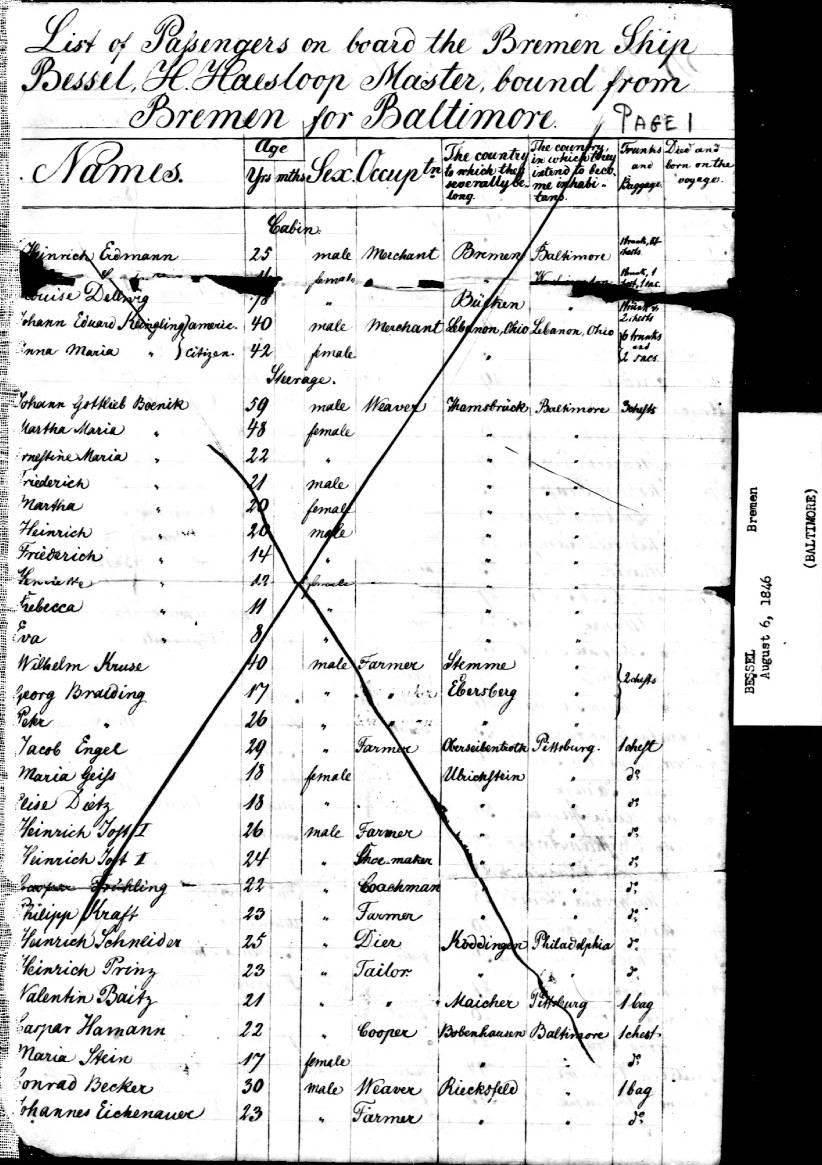 List of Passengers on board the Bremen Ship
Bessel, H. Haesloop Master, bound from
Bremen for Baltimore.
PAGE 1
Names. Age Yrs mths Sex. Occuptn The country to which they severally belong. The country, in which they intend to become inhabitans. Trunks and Baggage. Died and born on the voyage.
Cabin.
Heinrich Erdmann 25 male Merchant Bremen Baltimore
female
Louise Dellwig 18 " Bücken " 2 chests
Johann Eduard americ. 40 male Merchant Lebanon, Ohio Lebanon, Ohio 6 trunks and
Anna Maria " Citizen. 42 female " 2 sacs
Steerage.
Johann Gottlieb Boenik 59 male Weaver Thamsbrück Baltimore 3 chests
Martha Maria " 48 female " "
Ernestine Maria " 22 " " "
Friederich " 21 male " "
Martha " 20 female " "
Heinrich " 20 male " "
Friederich " 14 " " "
Henriette " 12 female " "
Rebecca " 11 " " "
Eva " 8 " " "
Wilhelm Kruse 40 male Farmer Stemme " 2 chests
Georg Braiding 17 " Ebersberg "
Peter " 26 " " "
Jacob Engel 29 " Farmer Pittsburg. 1 chest
Maria Geiss 18 female Ulrichstein " do
Elise Dietz 18 " " " do
Heinrich Jost I 26 male Farmer " " do
Heinrich Jost II 24 " Shoe-maker " " do
Caspar Fröhling 22 " Coachman " " do
Philipp Kraft 23 " Farmer " " do
Heinrich Schneider 25 " Dier Köddingen Philadelphia do
Heinrich Prinz 23 " Tailor. " " do
Valentin Baitz 21 " " Maicher Pittsburg 1 bag
Caspar Hamann 22 " Cooper Bobenhausen Baltimore 1 chest
Maria Stein 17 female " " do
Conrad Becker 30 male Weaver Riecksfeld " 1 bag
Johannes Eichenauer 23 " Farmer " " do
BESSEL Bremen
August 6, 1846
(BALTIMORE)